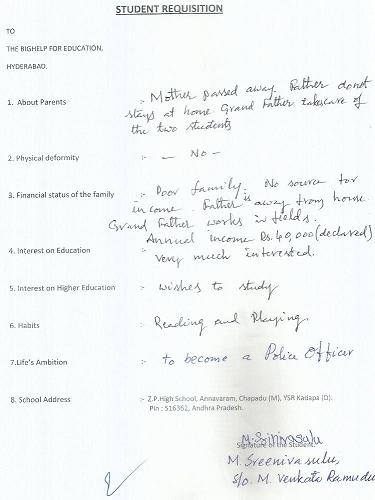 STUDENT REQUISITION
TO
THE BIGHELP FOR EDUCATION,
HYDERABAD.
1. About Parents :- Mother passed away. Father donot
stays at home. Grand Father takescare of
the two students
2. Physical deformity :- — No —
3. Financial status of the family :- Poor family. No source for
income. Father is away from home.
Grand Father works in fields.
Annual income Rs. 40,000 (declared)
4. Interest on Education :- Very much interested.
5. Interest on Higher Education :- Wishes to study
6. Habits :- Reading and Playing.
7.Life's Ambition :- to become a Police Officer
8. School Address :- Z.P.High School, Annavaram, Chapadu (M), YSR Kadapa (D).
Pin : 516362, Andhra Pradesh.
M. Srinivasulu
Signature of the Student.
M. Sreenivasulu,
S/o. M. Venkata Ramudu